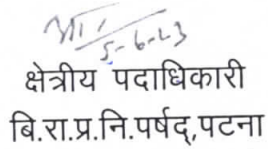 5-6-23
क्षेत्रीय पदाधिकारी
बि.रा.प्र.नि.पर्षद्,पटना